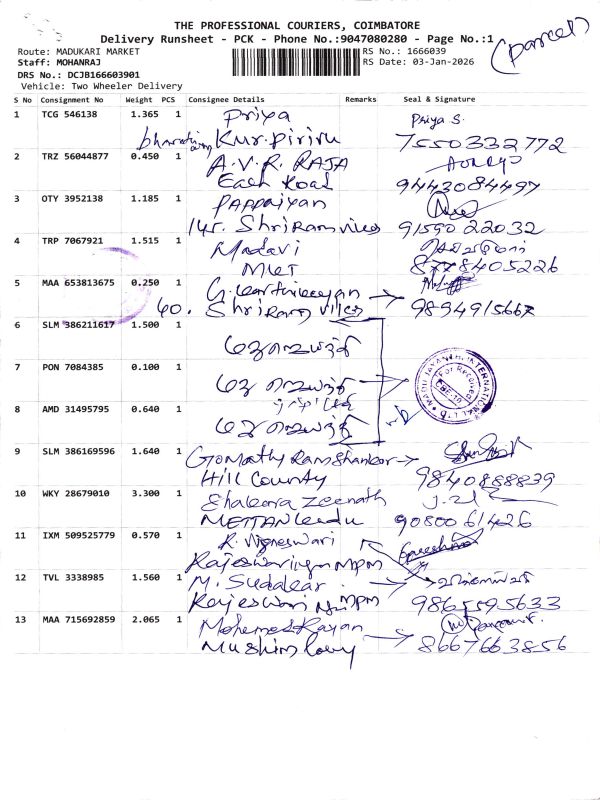 THE PROFESSIONAL COURIERS, COIMBATORE
Delivery Runsheet - PCK - Phone No.:9047080280 - Page No.:1
(parcel)
Route: MADUKARI MARKET
RS No.: 1666039
Staff: MOHANRAJ
RS Date: 03-Jan-2026
DRS No.: DCJB166603901
Vehicle: Two Wheeler Delivery
S No Consignment No Weight PCS Consignee Details Remarks Seal & Signature
1 TCG 546138 1.365 1 Priya Priya S.
7550332772
2 TRZ 56044877 0.450 1 A.V.R. RAJA
Each Road 9443084497
3 OTY 3952138 1.185 1 Pappaiyan
141. Shriram villas 9159022032
4 TRP 7067921 1.515 1 Madavi
MKT 8778405226
5 MAA 653813675 0.250 1 G. Karthikeyan
60. Shriram villas 9894915667
6 SLM 386211617 1.500 1 மது ஜெயந்தி
7 PON 7084385 0.100 1 மது ஜெயந்தி
8 AMD 31495795 0.640 1 மது ஜெயந்தி
MADU JAYANTHI INTERNATIONAL LTD
For Received
9 SLM 386169596 1.640 1 Gomathy Ramshankar
Hill County 9840888839
10 WKY 28679010 3.300 1 Zeenath
9080061426
11 IXM 509525779 0.570 1 R. Vigneswari
Rajeswari MPM
12 TVL 3338985 1.560 1 M. Sudalear
Rajeswari MPM 9865595633
13 MAA 715692859 2.065 1 Mohemed Rayan
Muslim 8667663856